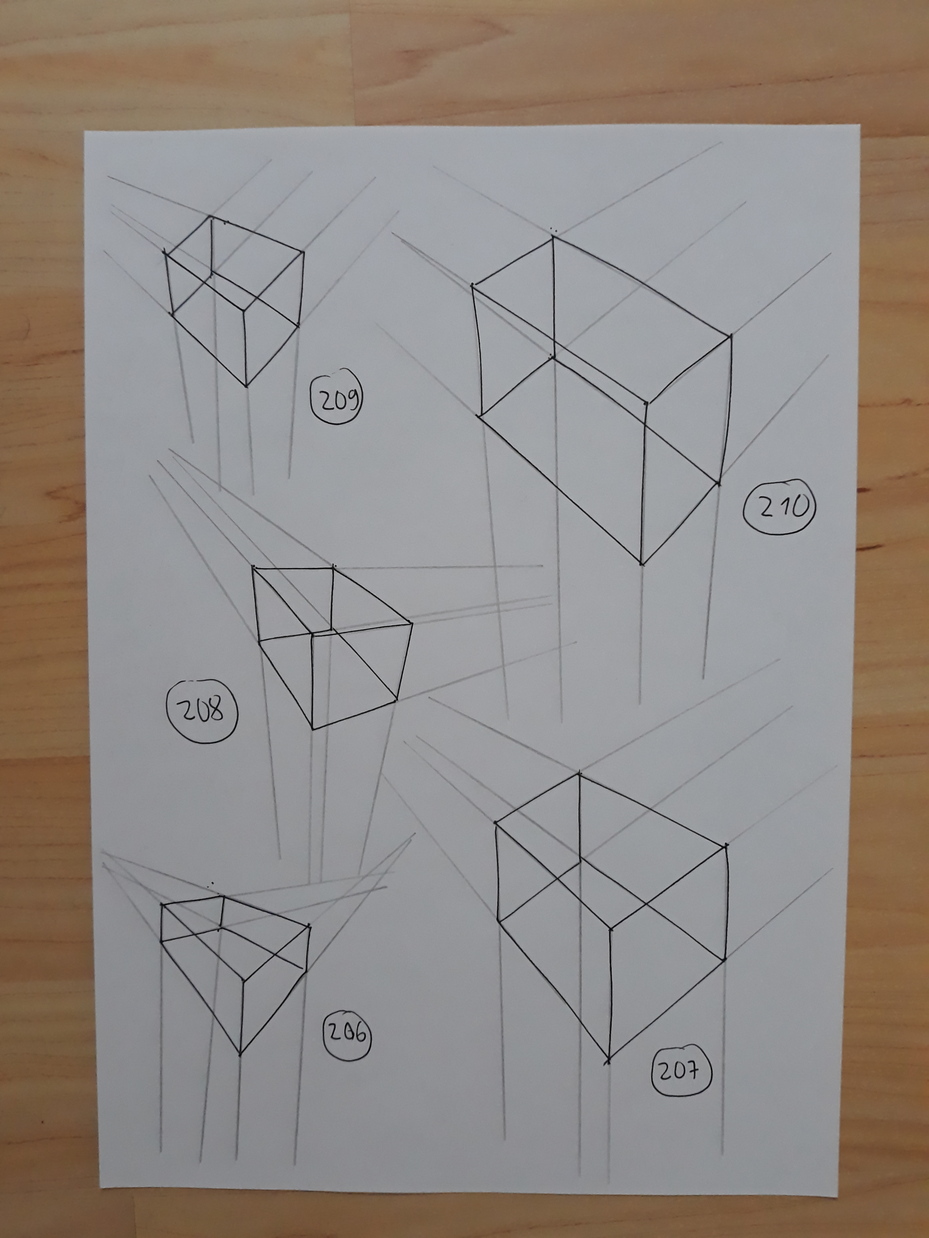 209
210
208
206
207